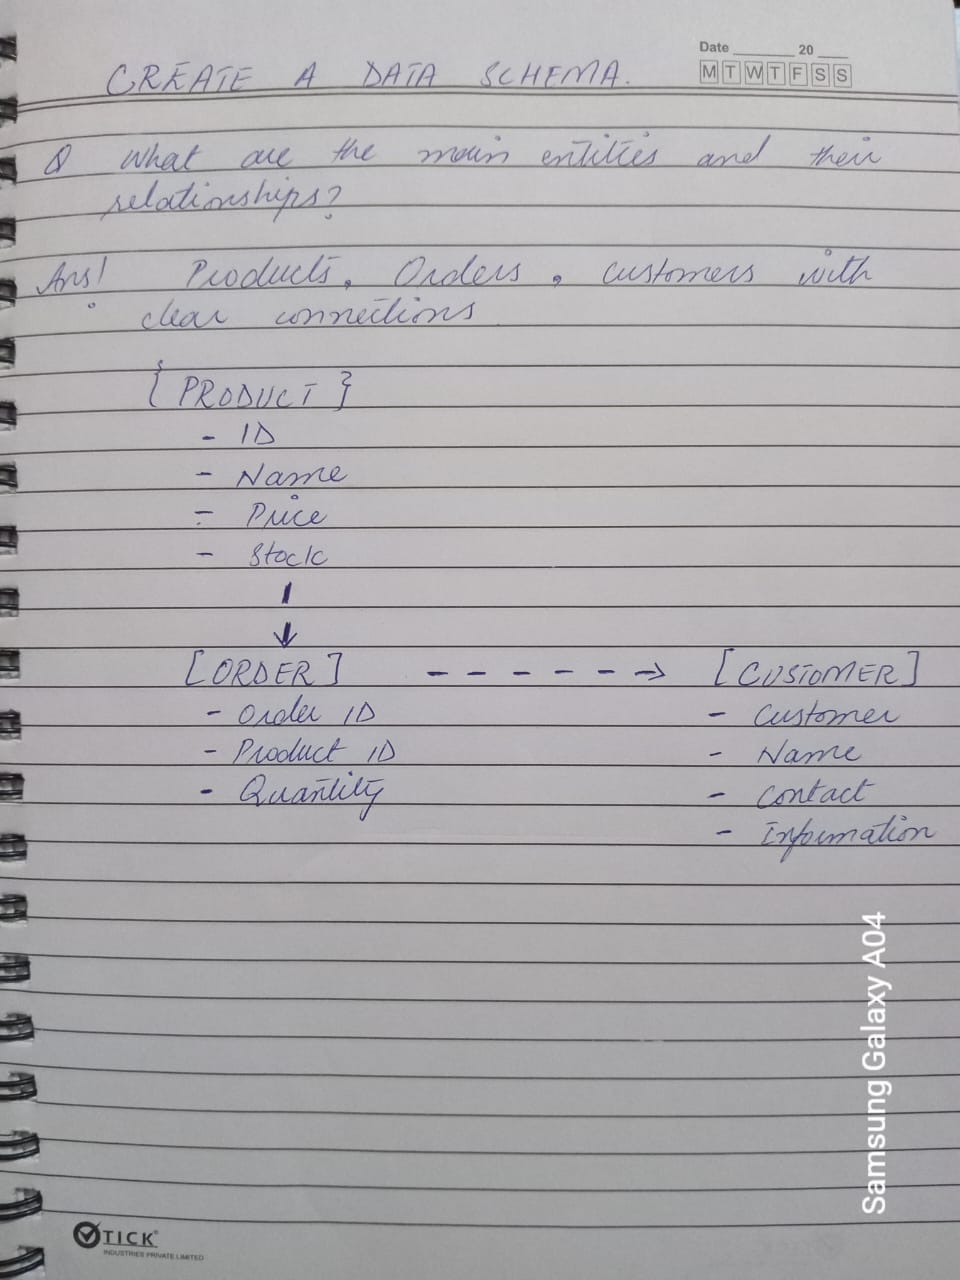 Date ______ 20 ___
M T W T F S S
CREATE A DATA SCHEMA.
Q What are the main entities and their
relationships?
Ans! Products, Orders, customers with
clear connections
{ PRODUCT }
- ID
- Name
- Price
- Stock
[ORDER] - - - - - - → [CUSTOMER]
- Order ID - Customer
- Product ID - Name
- Quantity - Contact
- Information
Samsung Galaxy A04
TICK
INDUSTRIES PRIVATE LIMITED